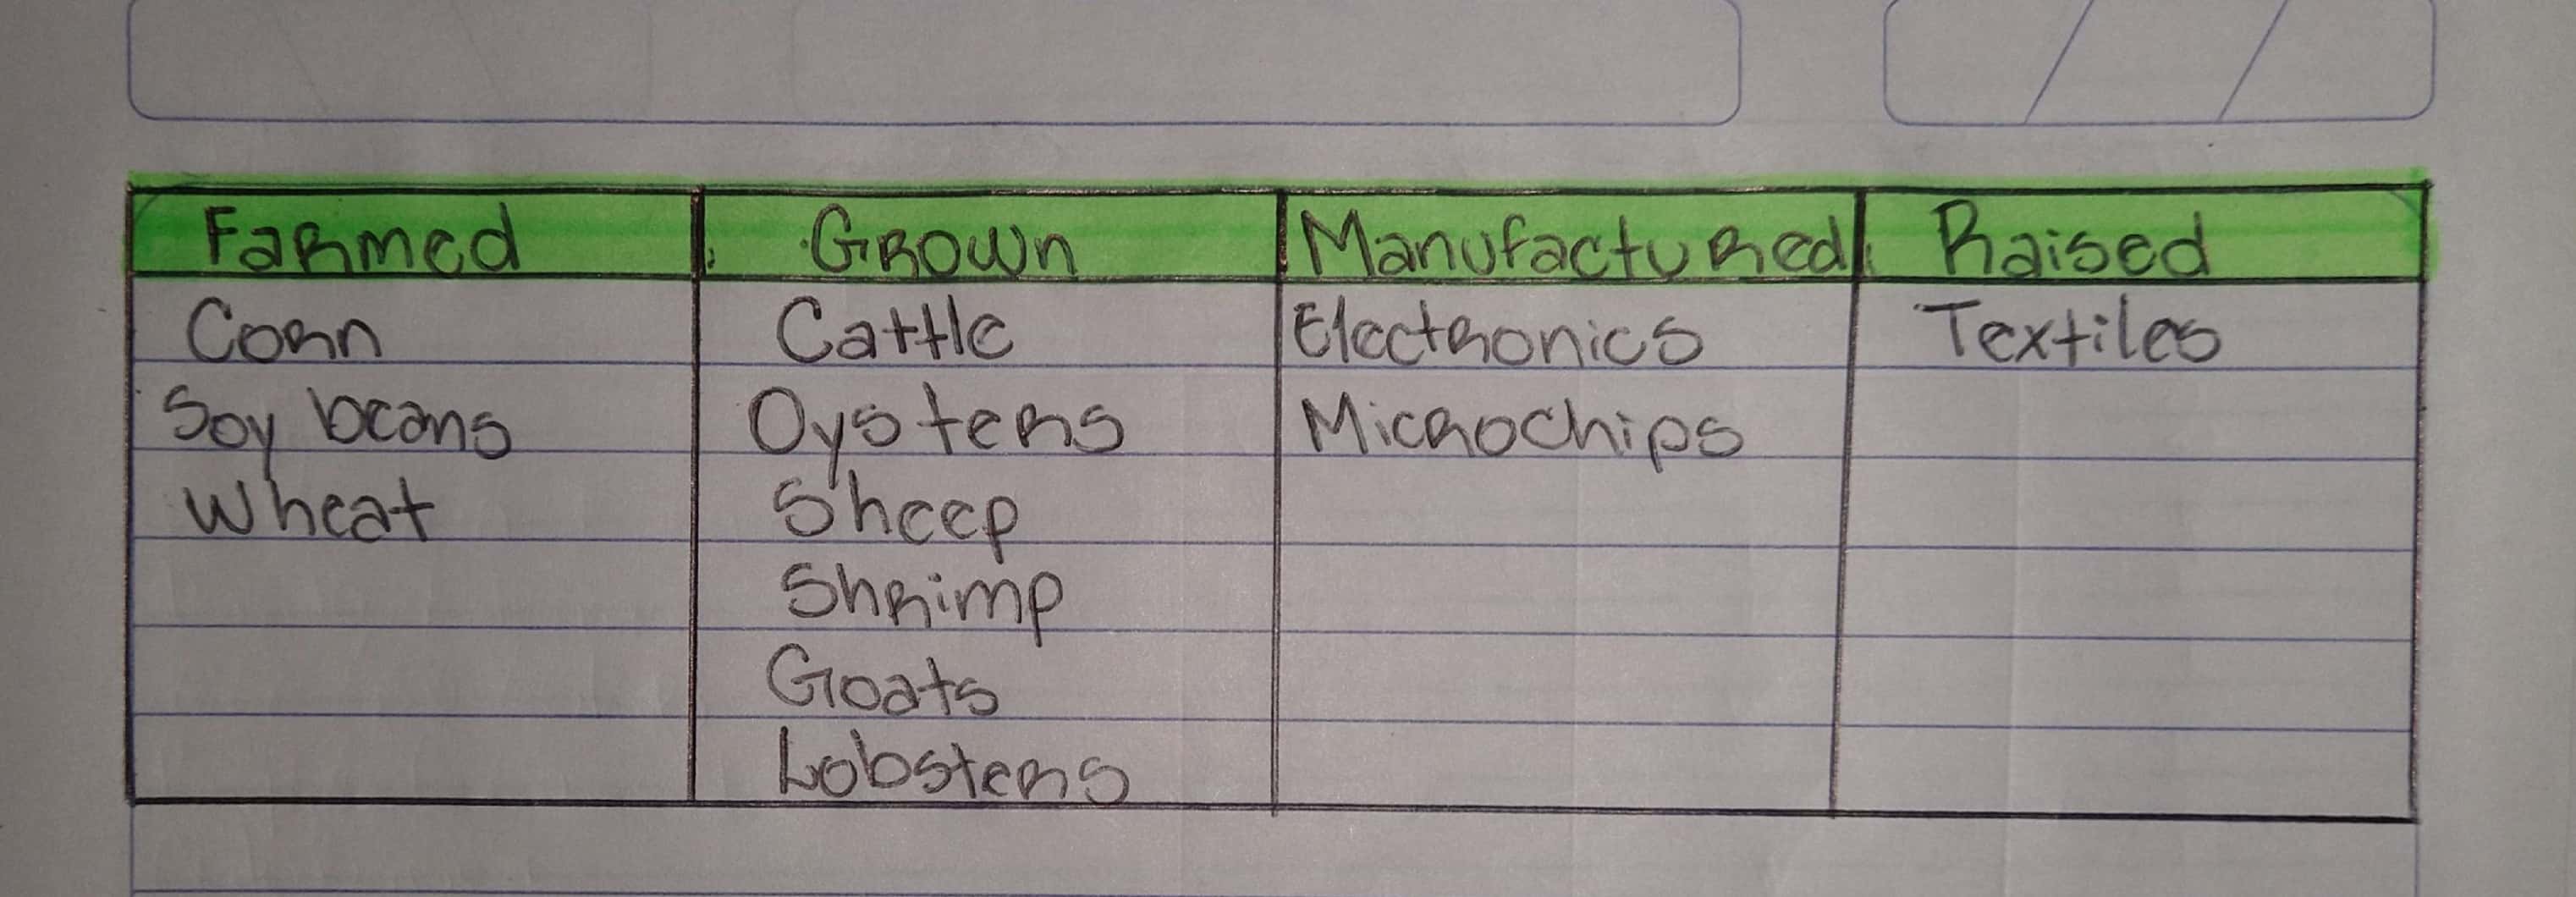 Farmed Grown Manufactured Raised
Corn Cattle Electronics Textiles
Soy beans Oysters Microchips
Wheat Sheep
Shrimp
Goats
Lobsters